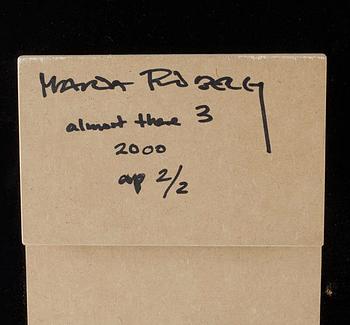 MARIA FRIBERG
almost there 3
2000
ap 2/2